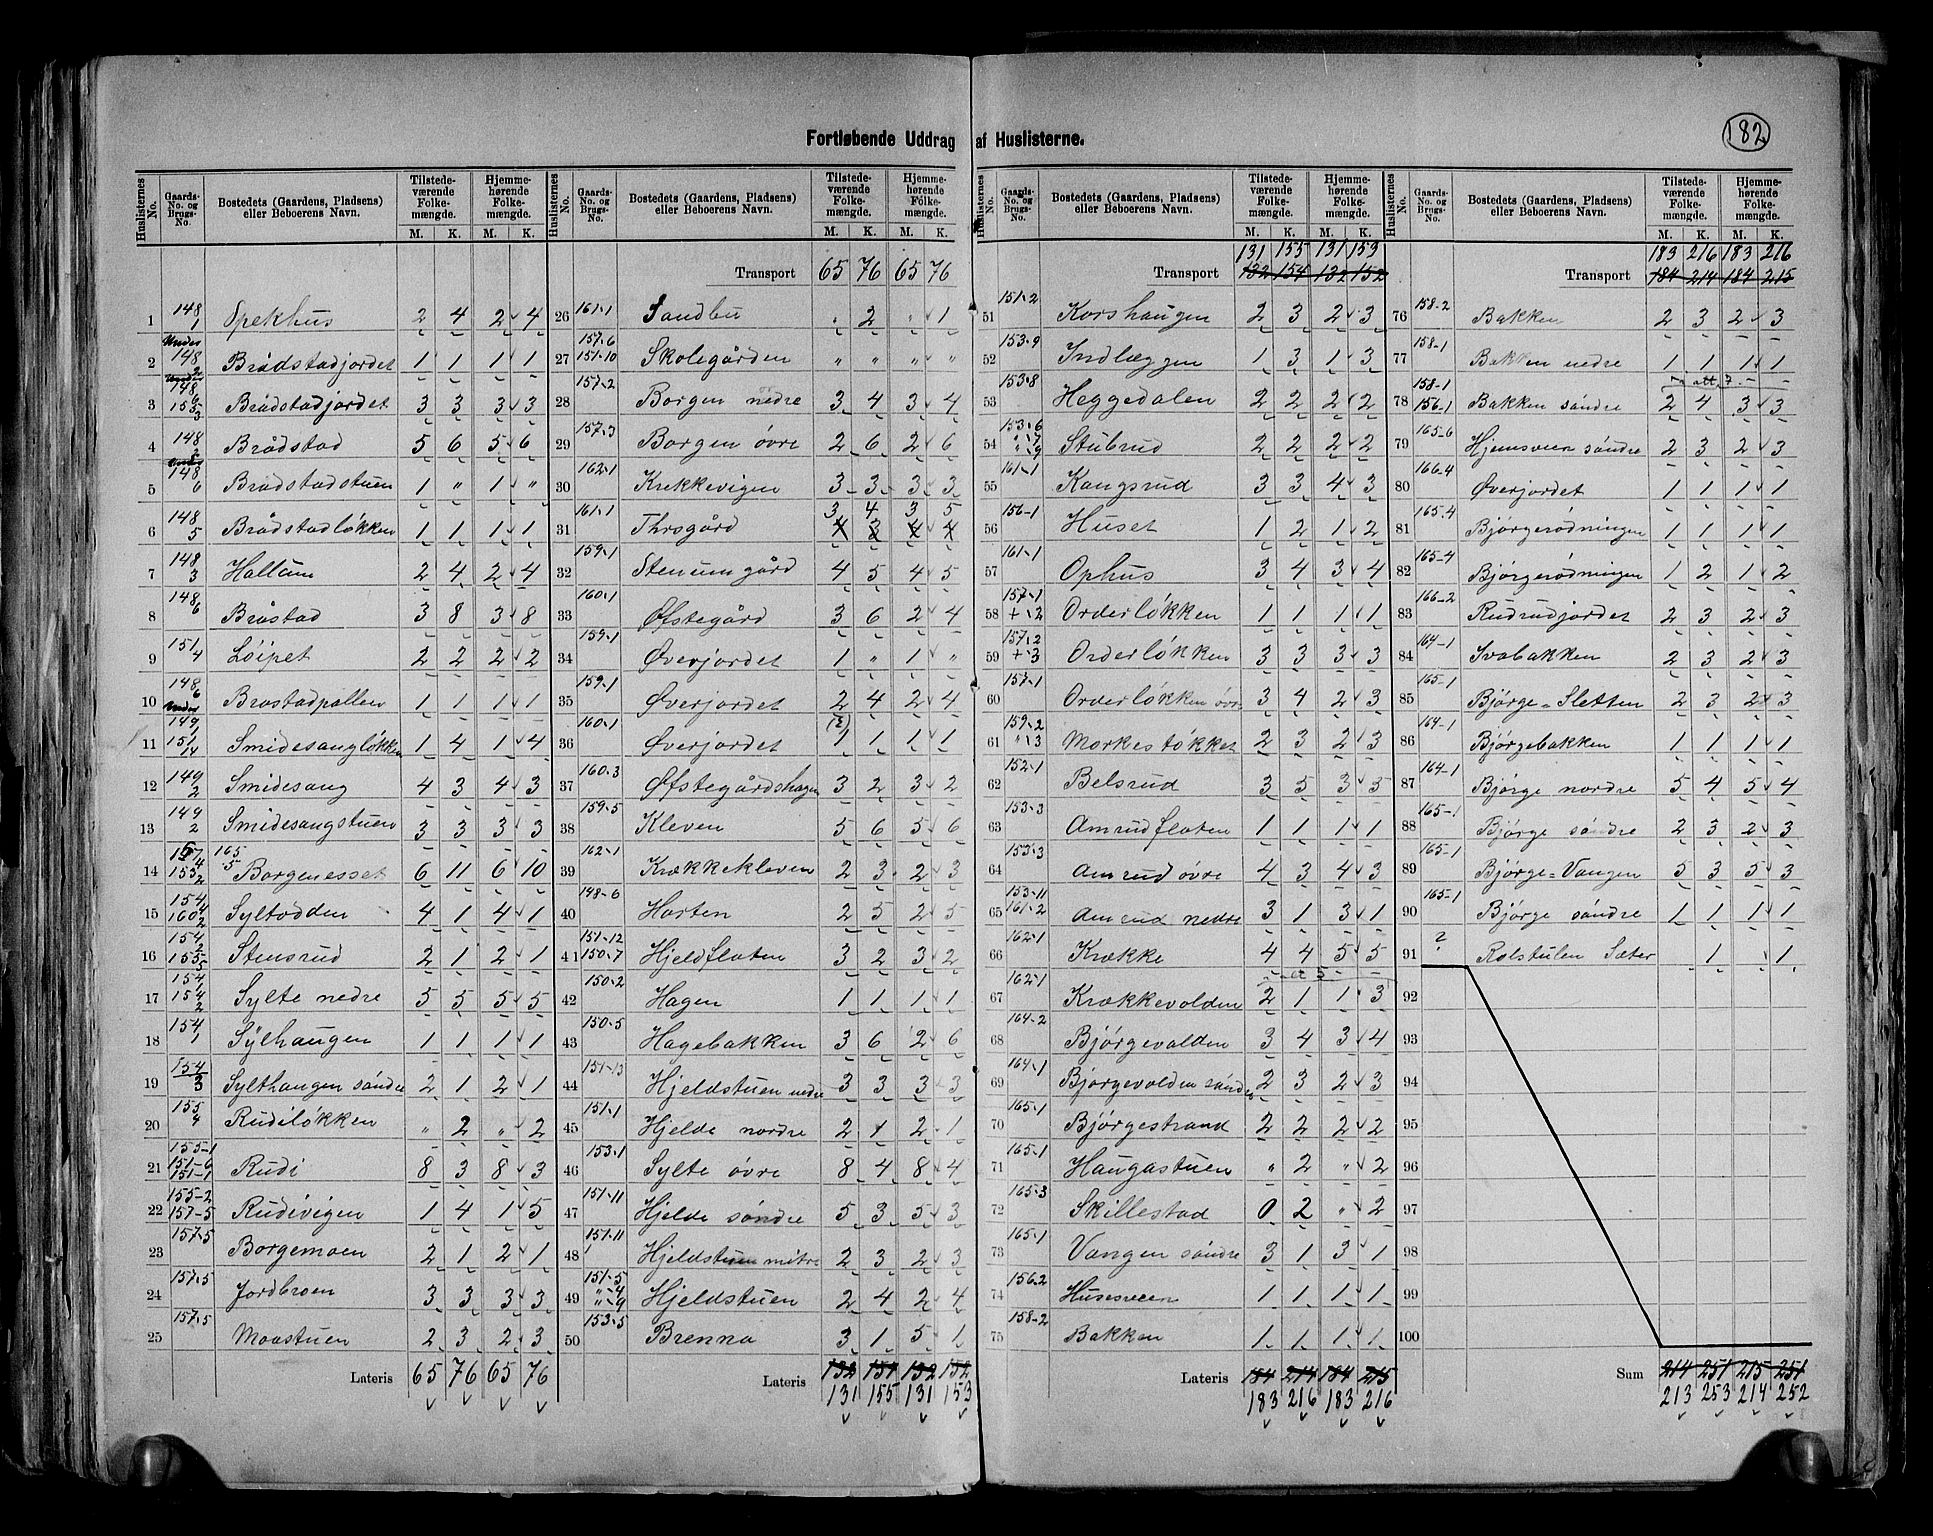 182
Fortløbende Uddrag af Huslisterne.
Huslisternes No. | Gaards-No. og Brugs-No. | Bostedets (Gaardens, Pladsens) eller Beboerens Navn. | Tilstedeværende Folkemængde. M. K. | Hjemmehørende Folkemængde. M. K.
1 148/1 Opekhus 2 4 2 4
2 Under 148/2 Brådstadjordet 1 1 1 1
3 Brådstadjordet 3 3 3 3
4 148 Brådstad 5 6 5 6
5 Under 148/6 Brådstadstuen 1 " 1 "
6 148/5 Brådstadløkken 1 1 1 1
7 148/3 Hallum 2 4 2 4
8 148/6 Bråstad 3 8 3 8
9 151/4 Løipet 2 2 2 2
10 148/6 Bråstadpallen 1 1 1 1
11 Under 149/1 151/14 Smidesangløkken 1 4 1 4
12 149/2 Smidesang 4 3 4 3
13 149/2 Smidesangstuen 3 3 3 3
14 153/2 165-5 Borgenesset 6 11 6 10
15 154/4 160/2 Syltodden 4 1 4 1
16 154/2 155/5 Stensrud 2 1 2 1
17 154/1 154/2 Sylte nedre 5 5 5 5
18 154/1 Sylhaugen 1 1 1 1
19 154/3 Sylthaugen søndre 2 1 2 1
20 155/4 Rudiløkken " 2 " 2
21 155-1 151-6 151-7 Rudi 8 3 8 3
22 155-2 157-5 Rudivigen 1 4 1 5
23 157-5 Borgemoen 2 1 2 1
24 157-5 Jordbroen 3 3 3 3
25 157-5 Moastuen 2 3 2 3
Lateris 65 76 65 76
Huslisternes No. | Gaards-No. og Brugs-No. | Bostedets (Gaardens, Pladsens) eller Beboerens Navn. | Tilstedeværende Folkemængde. M. K. | Hjemmehørende Folkemængde. M. K.
Transport 65 76 65 76
26 161-1 Sandbu " 2 " 1
27 157-6 151-10 Skolegården " " " "
28 157-2 Borgen nedre 3 4 3 4
29 157-3 Borgen øvre 2 6 2 6
30 162-1 Krekkevigen 3 3 3 3
3 4 3 5
31 161-1 Thrsgård 4 3 4 4
32 159-1 Stenumgård 4 5 4 5
33 160-1 Øfstegård 3 6 2 4
34 159-1 Øverjordet 1 " 1 "
35 159-1 Øverjordet 2 4 2 4
36 160-1 Øverjordet 1 1 1 1
37 160-3 Øfstegårdshagen 3 2 3 2
38 159-5 Kleven 5 6 5 6
39 162-1 Krækkekleven 2 3 2 3
40 148-6 Horten 2 5 2 5
41 151-12 150-7 Hjeldflaten 3 2 3 2
42 150-2 Hagen 1 1 1 1
43 150-5 Hagebakken 3 6 2 6
44 151-13 Hjeldstuen nedre 3 3 3 3
45 151-1 Hjelde nordre 2 1 2 1
46 153-1 Sylte øvre 8 4 8 4
47 151-11 Hjelde søndre 5 3 5 3
48 151-11 Hjeldstuen mitre 2 3 2 3
49 151-5 "-4 "-9 Hjeldstuen 2 4 2 4
50 153-5 Brenna 3 1 5 1
Lateris 132 154 132 152
131 155 131 153
Huslisternes No. | Gaards-No. og Brugs-No. | Bostedets (Gaardens, Pladsens) eller Beboerens Navn. | Tilstedeværende Folkemængde. M. K. | Hjemmehørende Folkemængde. M. K.
131 155 131 153
Transport 132 154 132 152
51 151-2 Korshaugen 2 3 2 3
52 153-9 Indlæggen 1 3 1 3
53 153-8 Heggedalen 2 2 2 2
54 153-6 "-7 "-9 Stubrud 2 2 2 2
55 161-1 Kongsrud 3 3 4 3
56 156-1 Huset 1 2 1 2
57 161-1 Ophus 3 4 3 4
58 157-1 +-2 Orderløkken 1 1 1 1
59 157-2 +-3 Orderløkken 3 3 3 3
60 157-1 Orderløkken øvre 3 4 2 3
61 159-2 "-3 Morkestøkket 2 3 2 3
62 152-1 Belsrud 3 5 3 5
63 153-3 Amrudflaten 1 1 1 1
64 153-3 Amrud øvre 4 3 4 3
65 153-11 161-2 Amrud nedre 3 1 3 1
66 162-1 Krække 4 4 5 5
67 162-1 Krækkevolden 2 1 1 3
68 164-2 Bjørgevolden 3 4 3 4
69 164-1 Bjørgevolden søndre 2 3 2 3
70 165-1 Bjørgestrand 2 2 2 2
71 165-1 Haugastuen " 2 " 2
72 165-3 Skillestad 0 2 " 2
73 165-1 Vangen søndre 3 1 3 1
74 156-2 Husesveen 1 1 1 1
75 158-2 Bakken 1 1 1 1
Lateris 184 214 184 215
183 216 183 216
Huslisternes No. | Gaards-No. og Brugs-No. | Bostedets (Gaardens, Pladsens) eller Beboerens Navn. | Tilstedeværende Folkemængde. M. K. | Hjemmehørende Folkemængde. M. K.
183 216 183 216
Transport 184 214 184 215
76 158-2 Bakken 2 3 2 3
77 158-1 Bakken nedre 1 1 1 1
78 158-1 156-1 Bakken søndre 2 4 3 3
79 165-6 Hjemsveen søndre 2 3 2 3
80 166-4 Øverjordet 1 1 1 1
81 165-4 Bjørgerødningen 1 1 1 1
82 165-4 Bjørgerødningen 1 2 1 2
83 166-2 Rudrudjordet 2 3 2 3
84 164-1 Svabakken 2 3 2 3
85 165-1 Bjørge-Sletten 2 3 2 3
86 164-1 Bjørgebakken 1 1 1 1
87 164-1 Bjørge nordre 5 4 5 4
88 165-1 Bjørge søndre 2 3 2 3
89 165-1 Bjørge-Vangen 5 3 5 3
90 165-1 Bjørge søndre 1 1 1 1
91 ? Rolstulen Sæter 1 1
92
93
94
95
96
97
98
99
100
Sum 214 251 215 251
213 253 214 252